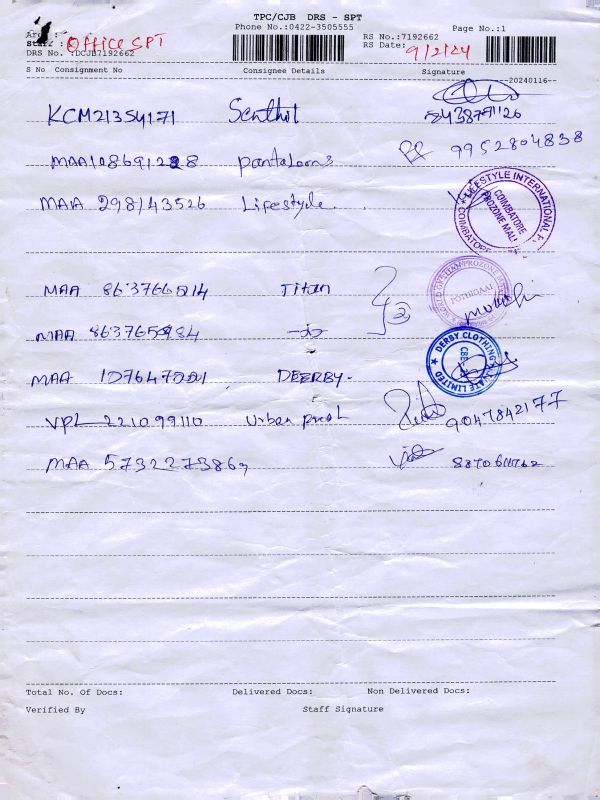 TPC/CJB DRS - SPT
Phone No.:0422-3505555
Page No.:1
OFFICE SPT
RS No.:7192662
RS Date: 9/2/24
DRS No. :DCJB7192662
S No Consignment No Consignee Details Signature
--20240116--
KCM21354171 Senthil
MAA108691228 pantaloons 9952804838
MAA 298143526 Lifestyle.
LIFESTYLE INTERNATIONAL
COIMBATORE
PROZONE MALL
COIMBATORE
MAA 863766514 Titan
POTHIGAAI
MAA 863765984 -do-
2
DERBY CLOTHING PRIVATE LIMITED
MAA 107647001 DEERBY-
VPL 221099110 Urban 9047842177
MAA 573227386
Total No. Of Docs: Delivered Docs: Non Delivered Docs:
Verified By Staff Signature